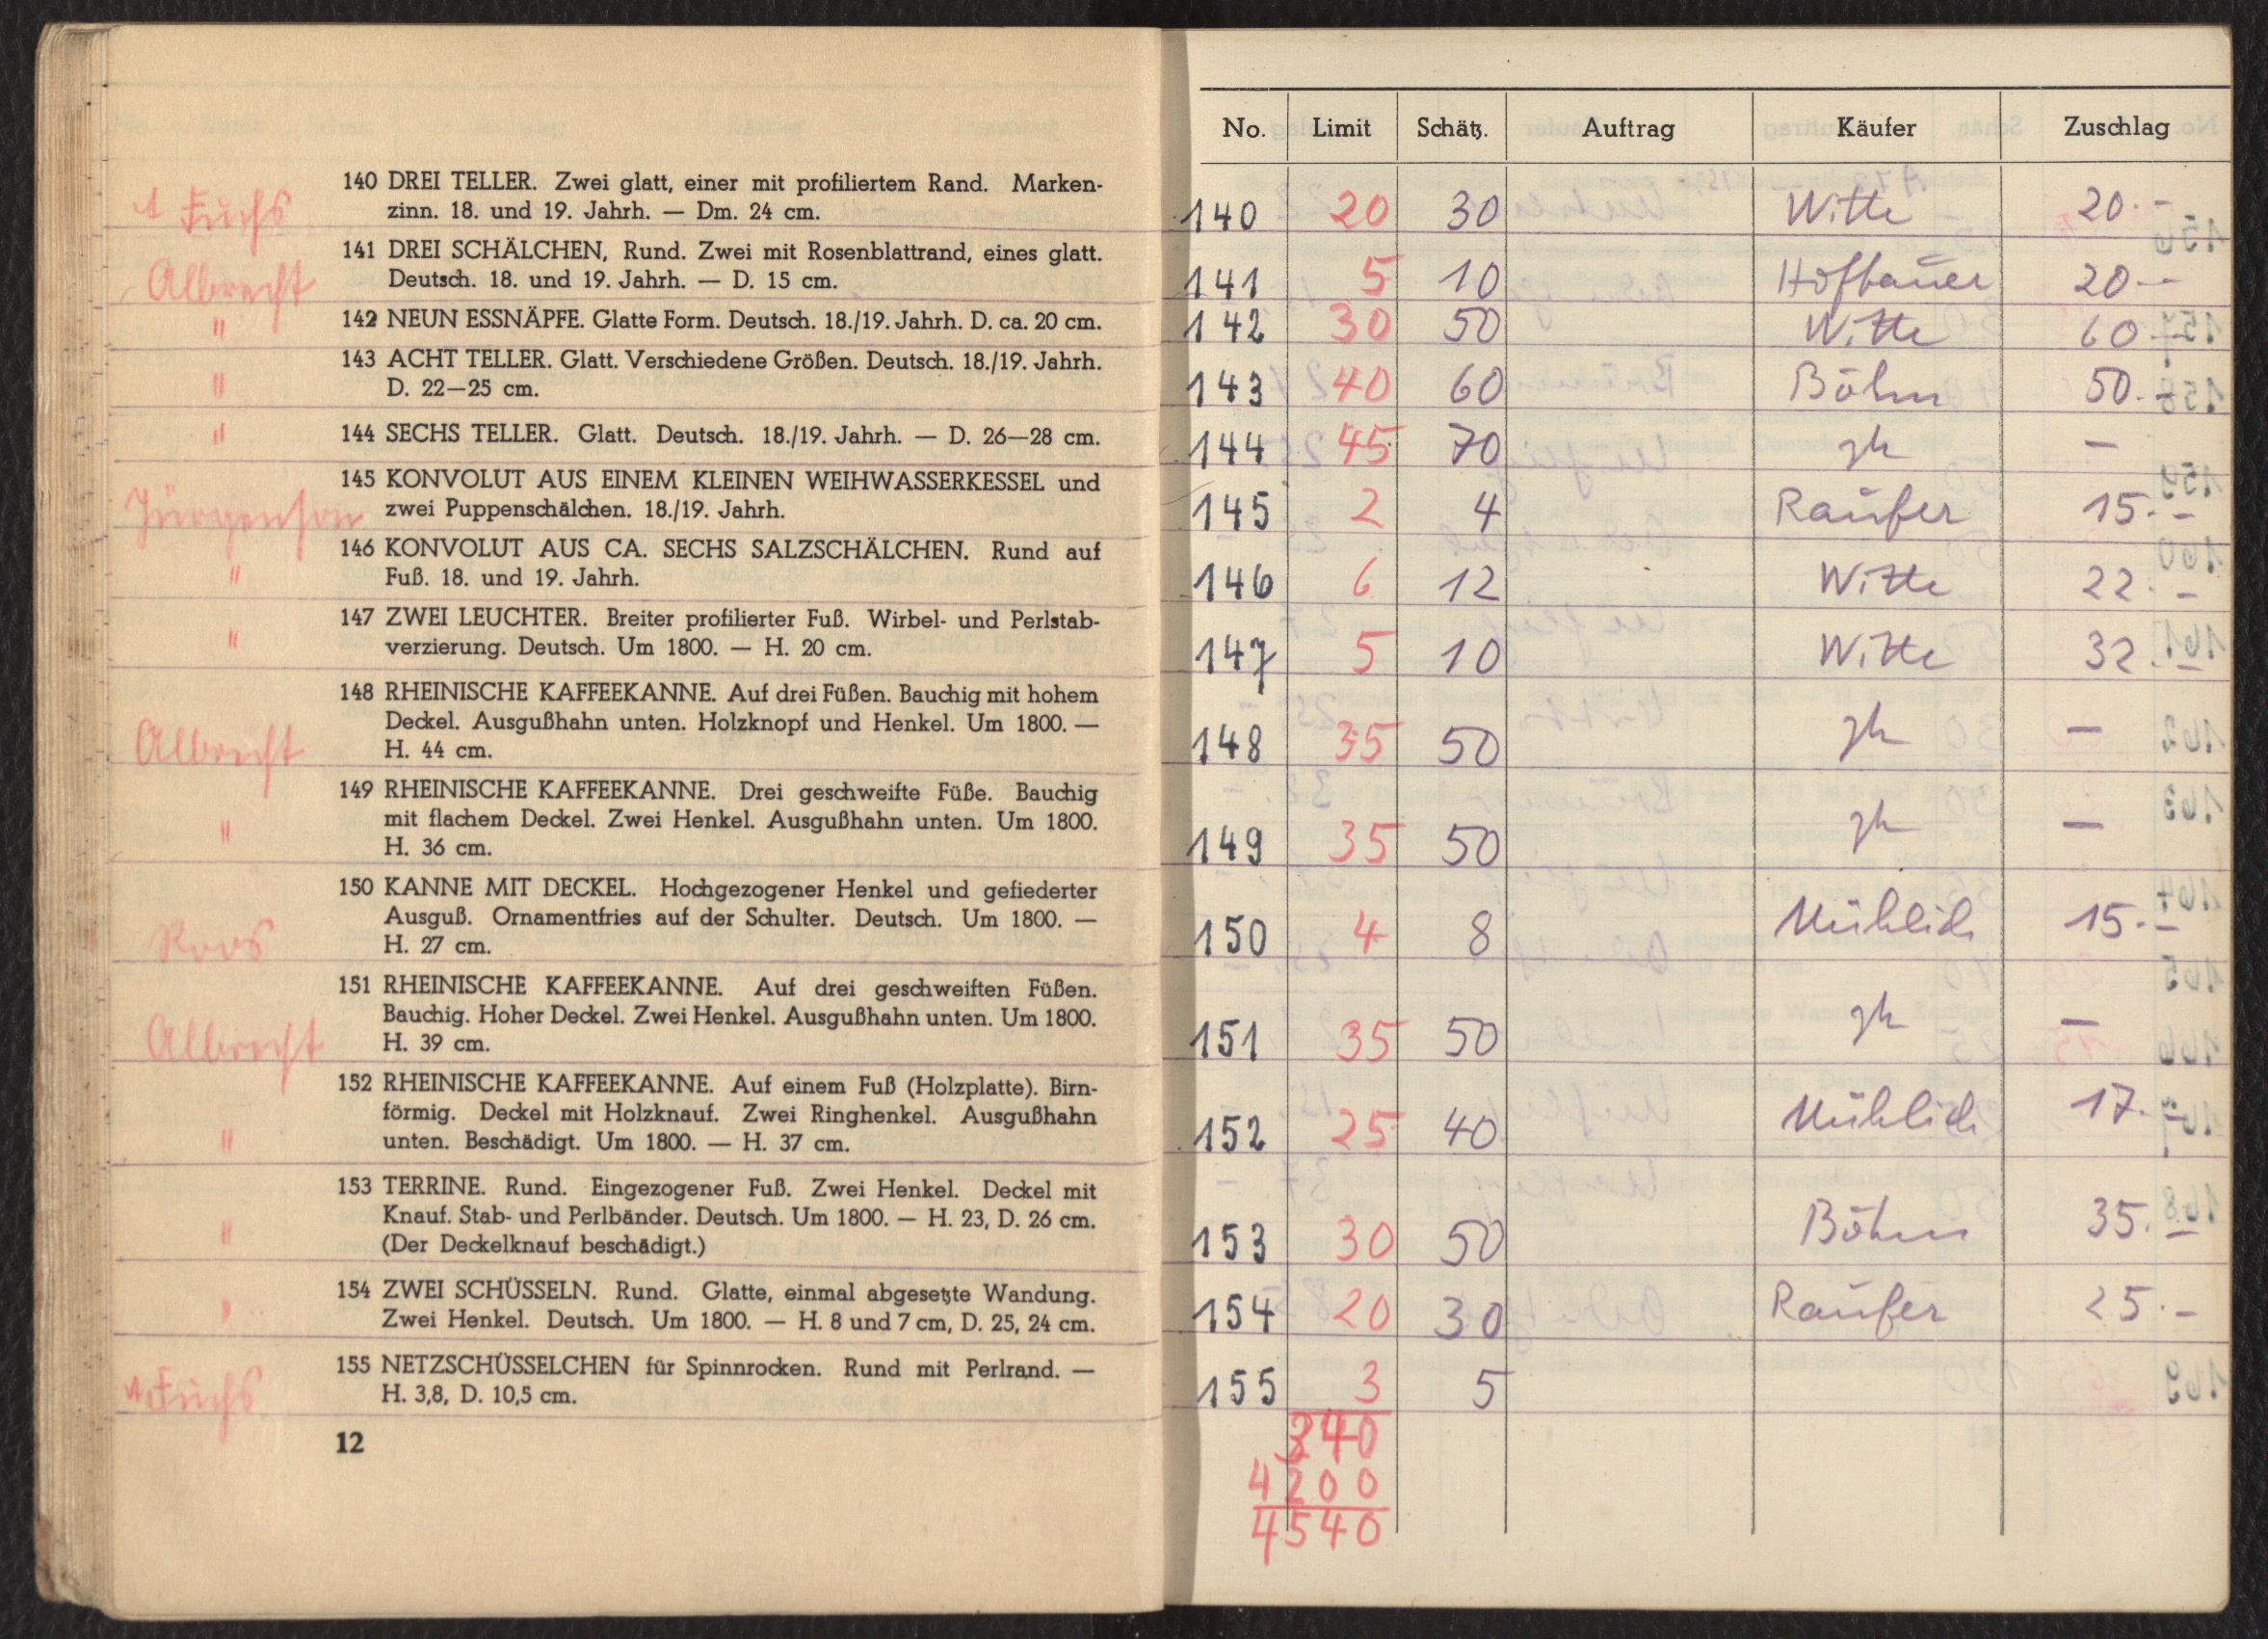 140 DREI TELLER. Zwei glatt, einer mit profiliertem Rand. Marken-
Fuchs zinn. 18. und 19. Jahrh. — Dm. 24 cm.
141 DREI SCHÄLCHEN, Rund. Zwei mit Rosenblattrand, eines glatt.
Albrecht Deutsch. 18. und 19. Jahrh. — D. 15 cm.
" 142 NEUN ESSNÄPFE. Glatte Form. Deutsch. 18./19. Jahrh. D. ca. 20 cm.
143 ACHT TELLER. Glatt. Verschiedene Größen. Deutsch. 18./19. Jahrh.
" D. 22—25 cm.
" 144 SECHS TELLER. Glatt. Deutsch. 18./19. Jahrh. — D. 26—28 cm.
145 KONVOLUT AUS EINEM KLEINEN WEIHWASSERKESSEL und
Jürgenson zwei Puppenschälchen. 18./19. Jahrh.
146 KONVOLUT AUS CA. SECHS SALZSCHÄLCHEN. Rund auf
" Fuß. 18. und 19. Jahrh.
147 ZWEI LEUCHTER. Breiter profilierter Fuß. Wirbel- und Perlstab-
" verzierung. Deutsch. Um 1800. — H. 20 cm.
148 RHEINISCHE KAFFEEKANNE. Auf drei Füßen. Bauchig mit hohem
Deckel. Ausgußhahn unten. Holzknopf und Henkel. Um 1800. —
Albrecht H. 44 cm.
149 RHEINISCHE KAFFEEKANNE. Drei geschweifte Füße. Bauchig
" mit flachem Deckel. Zwei Henkel. Ausgußhahn unten. Um 1800.
H. 36 cm.
150 KANNE MIT DECKEL. Hochgezogener Henkel und gefiederter
Ausguß. Ornamentfries auf der Schulter. Deutsch. Um 1800. —
Roos H. 27 cm.
151 RHEINISCHE KAFFEEKANNE. Auf drei geschweiften Füßen.
Bauchig. Hoher Deckel. Zwei Henkel. Ausgußhahn unten. Um 1800.
Albrecht H. 39 cm.
152 RHEINISCHE KAFFEEKANNE. Auf einem Fuß (Holzplatte). Birn-
förmig. Deckel mit Holzknauf. Zwei Ringhenkel. Ausgußhahn
" unten. Beschädigt. Um 1800. — H. 37 cm.
153 TERRINE. Rund. Eingezogener Fuß. Zwei Henkel. Deckel mit
Knauf. Stab- und Perlbänder. Deutsch. Um 1800. — H. 23, D. 26 cm.
" (Der Deckelknauf beschädigt.)
154 ZWEI SCHÜSSELN. Rund. Glatte, einmal abgesetzte Wandung.
" Zwei Henkel. Deutsch. Um 1800. — H. 8 und 7 cm, D. 25, 24 cm.
155 NETZSCHÜSSELCHEN für Spinnrocken. Rund mit Perlrand. —
Fuchs H. 3,8, D. 10,5 cm.
12
No. Limit Schätz. Auftrag Käufer Zuschlag
140 20 30 Witte 20.-
141 5 10 Hofbauer 20.-
142 30 50 Witte 60.-
143 40 60 Böhm 50.-
144 45 70 zk —
145 2 4 Raufer 15.-
146 6 12 Witte 22.-
147 5 10 Witte 32.-
148 35 50 zk —
149 35 50 zk —
150 4 8 Mühlich 15.-
151 35 50 zk —
152 25 40 Mühlich 17.-
153 30 50 Böhm 35.-
154 20 30 Raufer 25.-
155 3 5
340
4200
4540